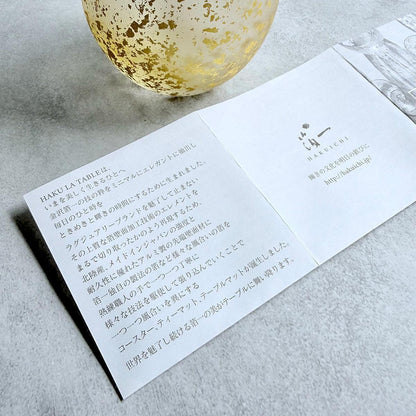 HAKU LA TABLEは、
いまを美しく生きるひとへ
金沢箔一の技の粋をミニマルにエレガントに抽出し
毎日のひと時を
ときめきと輝きの時間にするために生まれました。
ラグジュアリーブランドを魅了して止まない
その上質な箔壁紙加工技術のエレメントを
まるで切り取ったかのよう再現するため、
北陸産、メイドインジャパンの強度と
耐久性に優れたアルミ製の先端塑型材に
箔一独自の製法の箔など様々な風合いの箔を
熟練職人の手で一つ一つ丁寧に
様々な技法を駆使して張り込んでいくことで
一つ一つ風合いを異にする
コースター、ティーマット、テーブルマットが誕生しました。
世界を魅了し続ける箔一の美がテーブルに舞い降ります。
箔一
HAKUICHI
輝きの文化を明日の歓びに
http://hakuichi.jp/